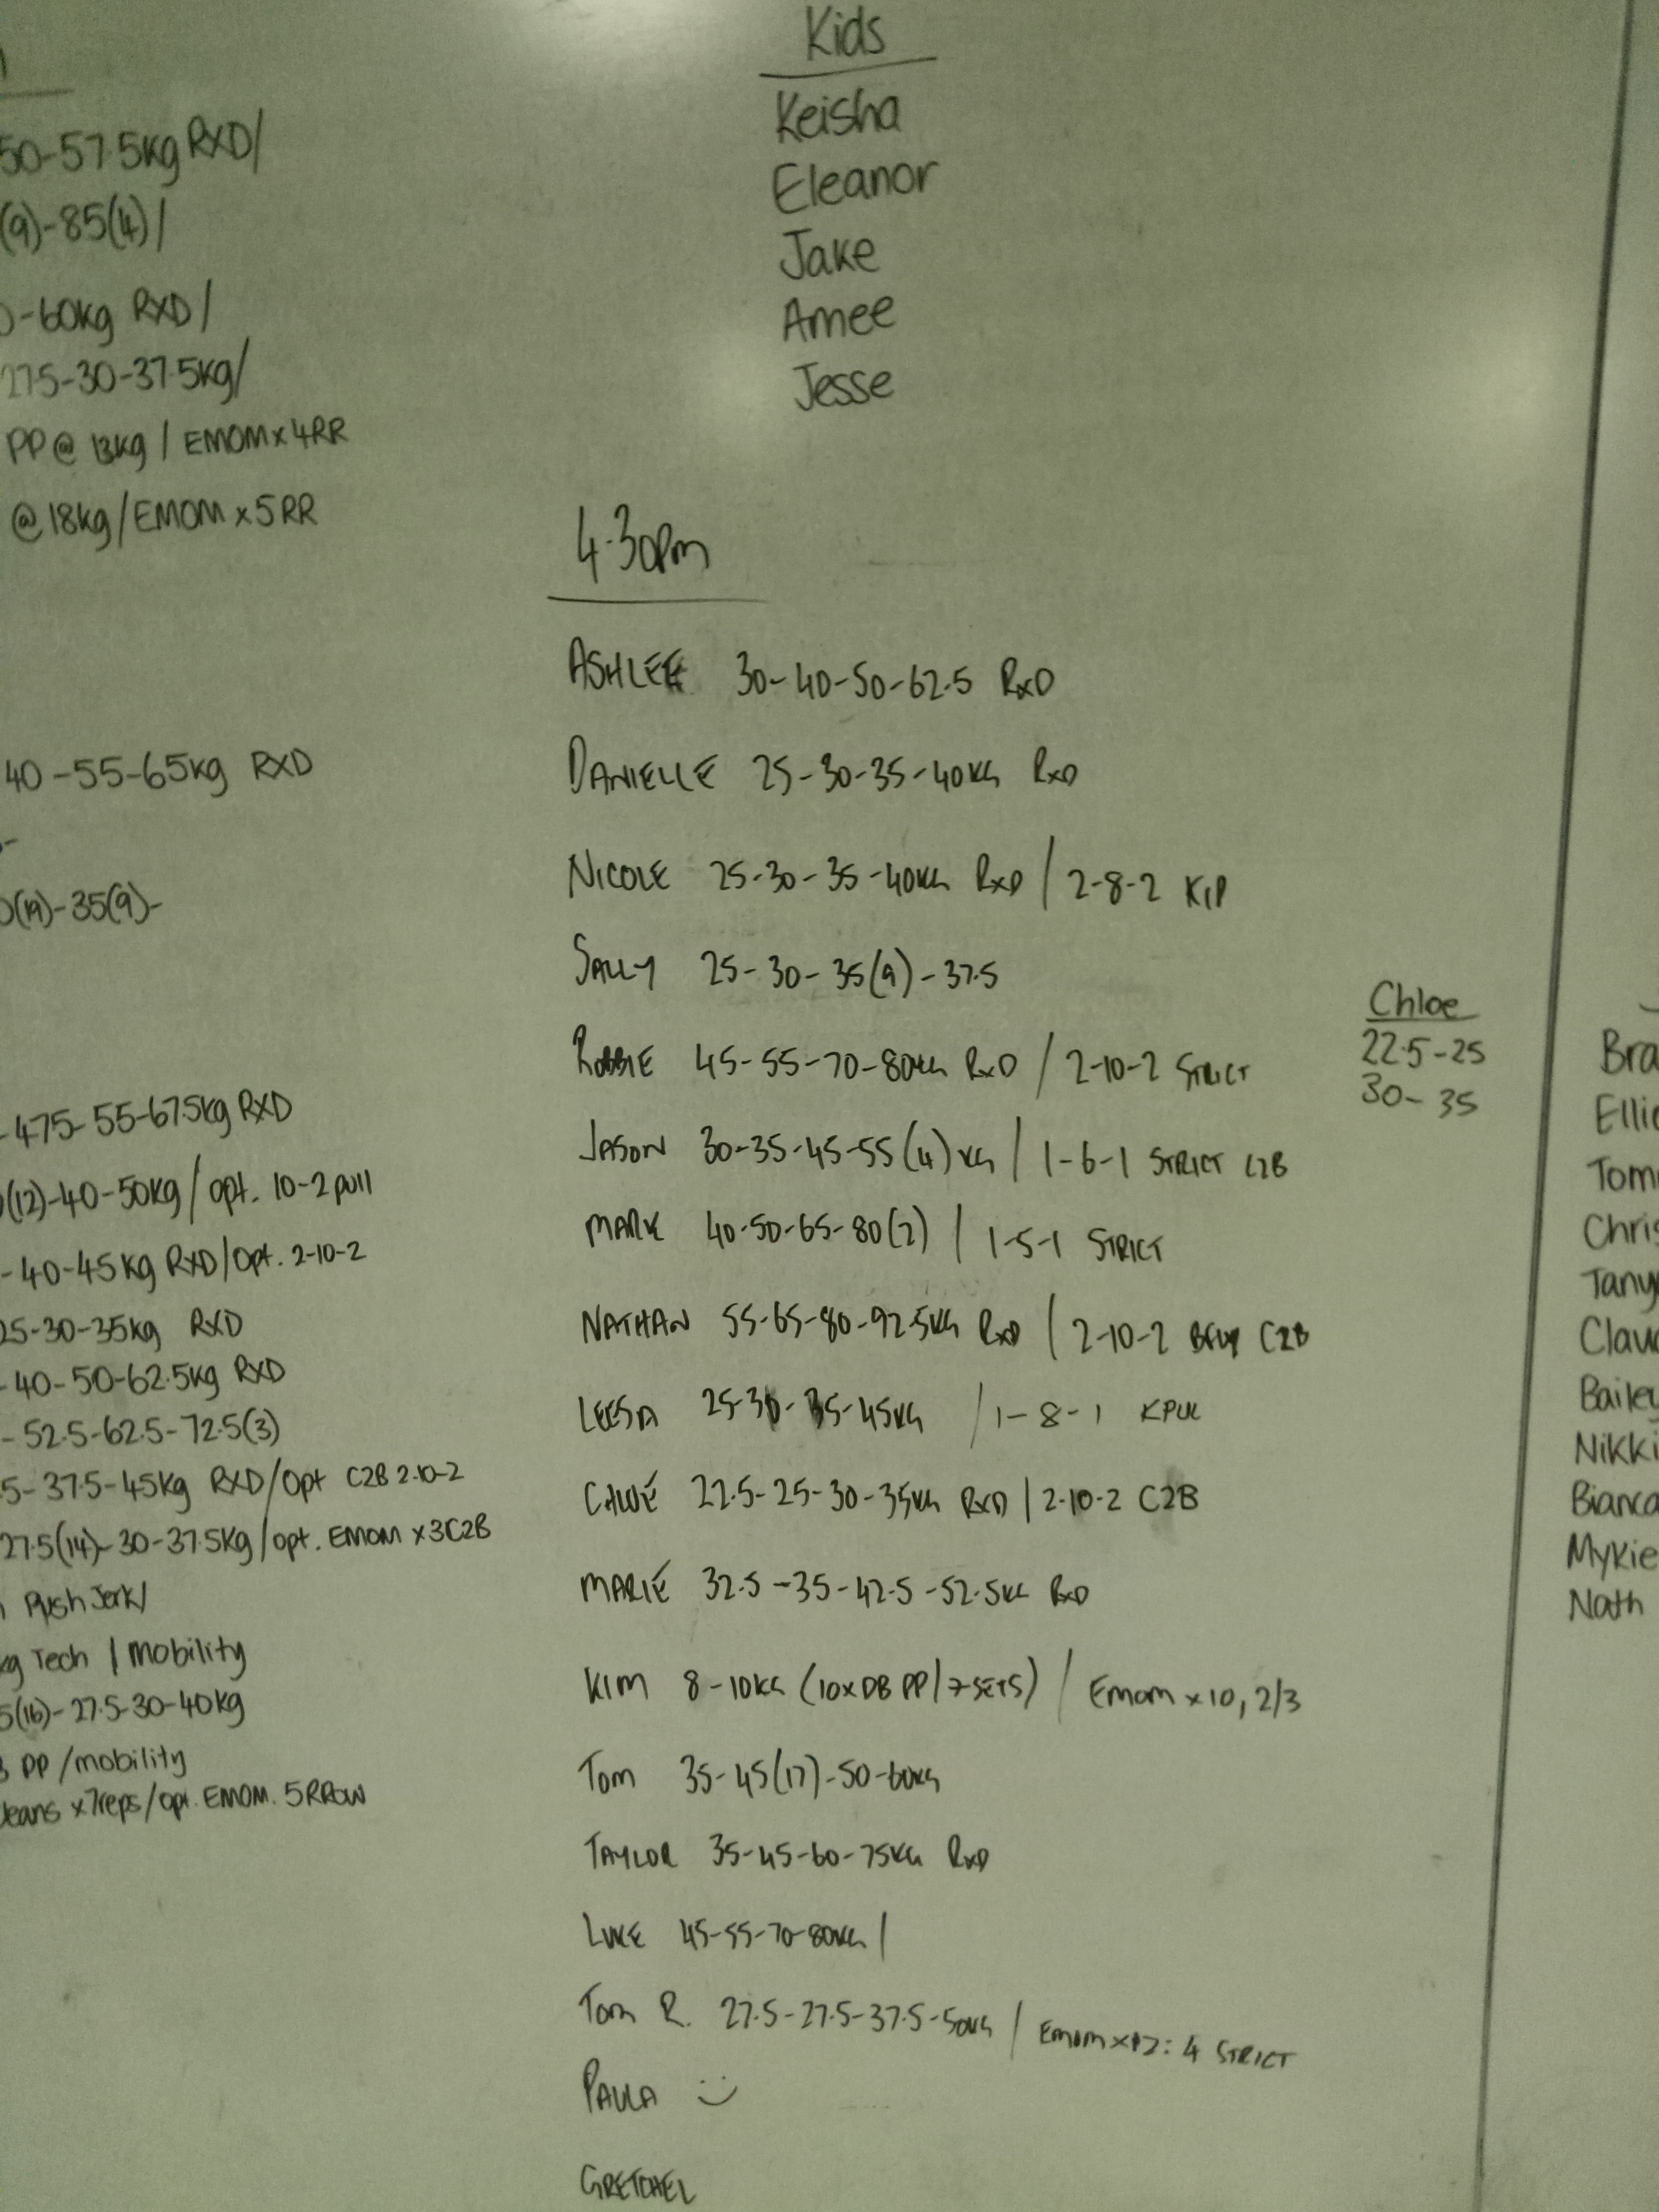 50-57.5kg RXD/
(9)-85(4)/
0-60kg RXD/
27.5-30-37.5kg/
PP@ 13kg / EMOM x 4RR
@ 18kg/EMOM x 5RR
40-55-65kg RXD
(19)-35(9)-
-47.5-55-67.5kg RXD
(12)-40-50kg/opt. 10-2 pull
-40-45kg RXD/Opt. 2-10-2
25-30-35kg RXD
-40-50-62.5kg RXD
-52.5-62.5-72.5(3)
5-37.5-45kg RXD/Opt C2B 2-10-2
27.5(14)-30-37.5kg/opt. EMOM x3C2B
Push Jerk/
kg Tech / mobility
5(16)-27.5-30-40kg
PP/mobility
leans x7reps/opt. EMOM. 5RROW
Kids
Keisha
Eleanor
Jake
Amee
Jesse
4.30pm
ASHLEE 30-40-50-62.5 RXD
DANIELLE 25-30-35-40KG RXD
NICOLE 25-30-35-40KG RXD / 2-8-2 KIP
SALLY 25-30-35(9)-37.5
ROBBIE 45-55-70-80KG RXD / 2-10-2 STRICT
JASON 30-35-45-55(4)KG / 1-6-1 STRICT C2B
MARK 40-50-65-80(2) / 1-5-1 STRICT
NATHAN 55-65-80-92.5KG RXD / 2-10-2 C2B
LEESA 25-30-35-45KG / 1-8-1 KPUL
CHLOE 22.5-25-30-35KG RXD / 2-10-2 C2B
MARIE 32.5-35-42.5-52.5KG RXD
KIM 8-10KG (10xDB PP/7SETS) / EMOM x 10, 2/3
TOM 35-45(17)-50-60KG
TAYLOR 35-45-60-75KG RXD
LUKE 45-55-70-80KG /
TOM R. 27.5-27.5-37.5-50KG / EMOM x12: 4 STRICT
PAULA
GRETCHEL
Chloe
22.5-25
30-35
Bra
Ellio
Tom
Chris
Tany
Clau
Bailey
Nikki
Bianca
Mykie
Nath